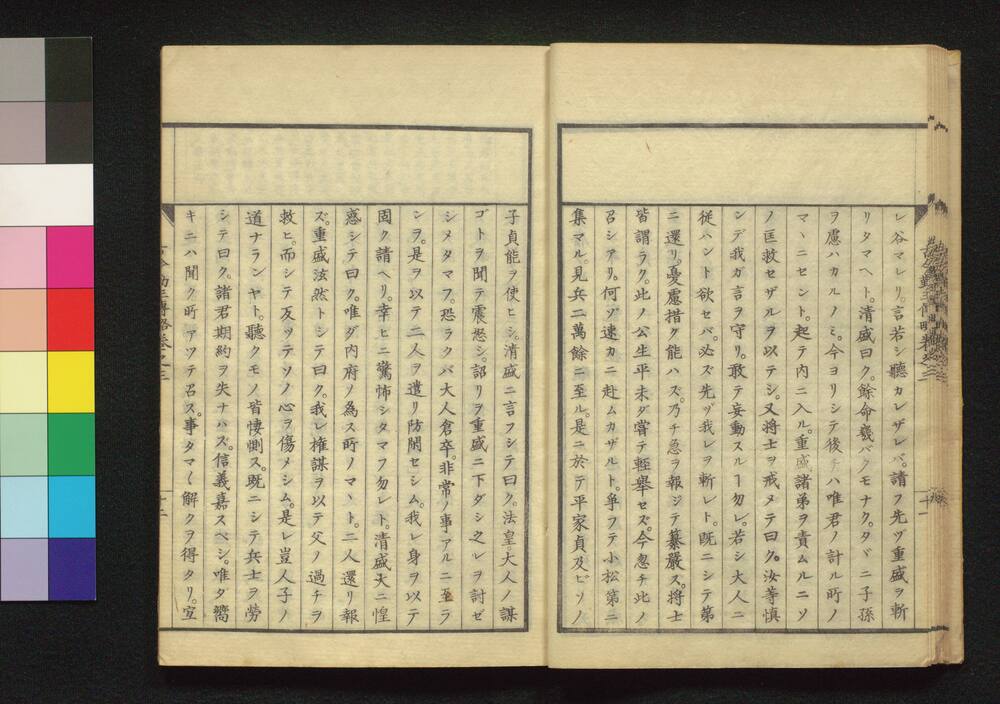 レ谷マレリ。言若シ聽カレザレバ。請フ先ヅ重盛ヲ斬
リタマヘト。清盛曰ク。餘命幾バクモナク。タヾニ子孫
ヲ慮ハカルノミ。今ヨリシテ後チハ唯君ノ計ル所ノ
マヽニセント。起テ内ニ入ル。重盛諸弟ヲ責ムルニソ
ノ匡救セザルヲ以テシ。又將士ヲ戒メテ曰ク。汝等慎
ンデ我ガ言ヲ守リ。敢テ妄動スルヿ勿レ。若シ大人ニ
從ハント欲セバ。必ズ先ヅ我レヲ斬レト。既ニシテ第
ニ還リ。憂慮措ク能ハズ。乃チ急ヲ報ジテ纂嚴ス。將士
皆謂ラク。此ノ公生平未ダ嘗テ輕舉セズ。今忽チ此ノ
召シアリ。何ゾ速カニ赴ムカザルト。爭フテ小松第ニ
集マル。見兵二萬餘ニ至ル。是ニ於テ平家貞及ビソノ
子貞能ヲ使ヒシ。清盛ニ言フシテ曰ク。法皇大人ノ謀
ゴトヲ聞テ震怒シ。詔リヲ重盛ニ下ダシ之レヲ討ゼ
シメタマフ。恐ラクバ大人倉卒。非常ノ事アルニ至ラ
ンヲ。是ヲ以テ二人ヲ遣リ防閑セシム。我レ身ヲ以テ
固ク請ヘリ。幸ヒニ驚怖シタマフ勿レト。清盛大ニ惶
惑シテ曰ク。唯ダ内府ノ為ス所ノマヽト。二人還リ報
ズ。重盛泫然トシテ曰ク。我レ權謀ヲ以テ父ノ過チヲ
救ヒ。而シテ反ッテソノ心ヲ傷メシム。是レ豈人子ノ
道ナランヤト。聽クモノ皆悽惻ス。既ニシテ兵士ヲ勞
シテ曰ク。諸君期約ヲ失ナハズ。信義嘉スベシ。唯タ嚮
キニハ聞ク所アツテ召ス。事タマ〱解クヲ得タリ。宜